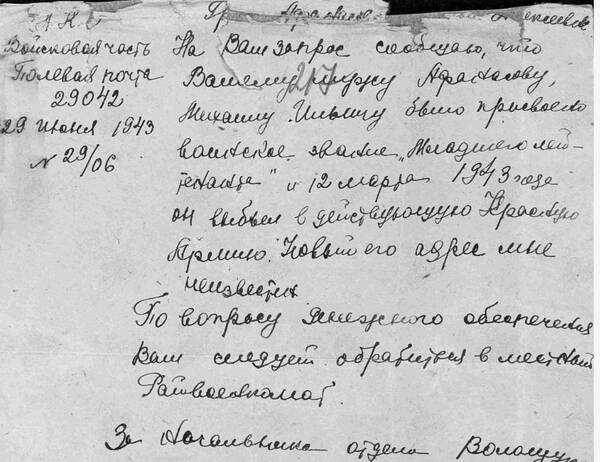 Н.К.О
Войсковая часть
Полевая почта
29042
29 июня 1943
N 29/06
217
На Ваш запрос сообщаю, что
Вашему мужу Афанасову,
Михаилу Ильичу было присвоено
воинское звание „Младшего лей-
тенанта" и 12 марта 1943 года
он выбыл в действующую Красную
Армию. Новый его адрес мне
неизвестен
По вопросу денежного обеспечения
Вам следует обратиться в местный
Райвоенкомат.
За Начальника отдела Волощук